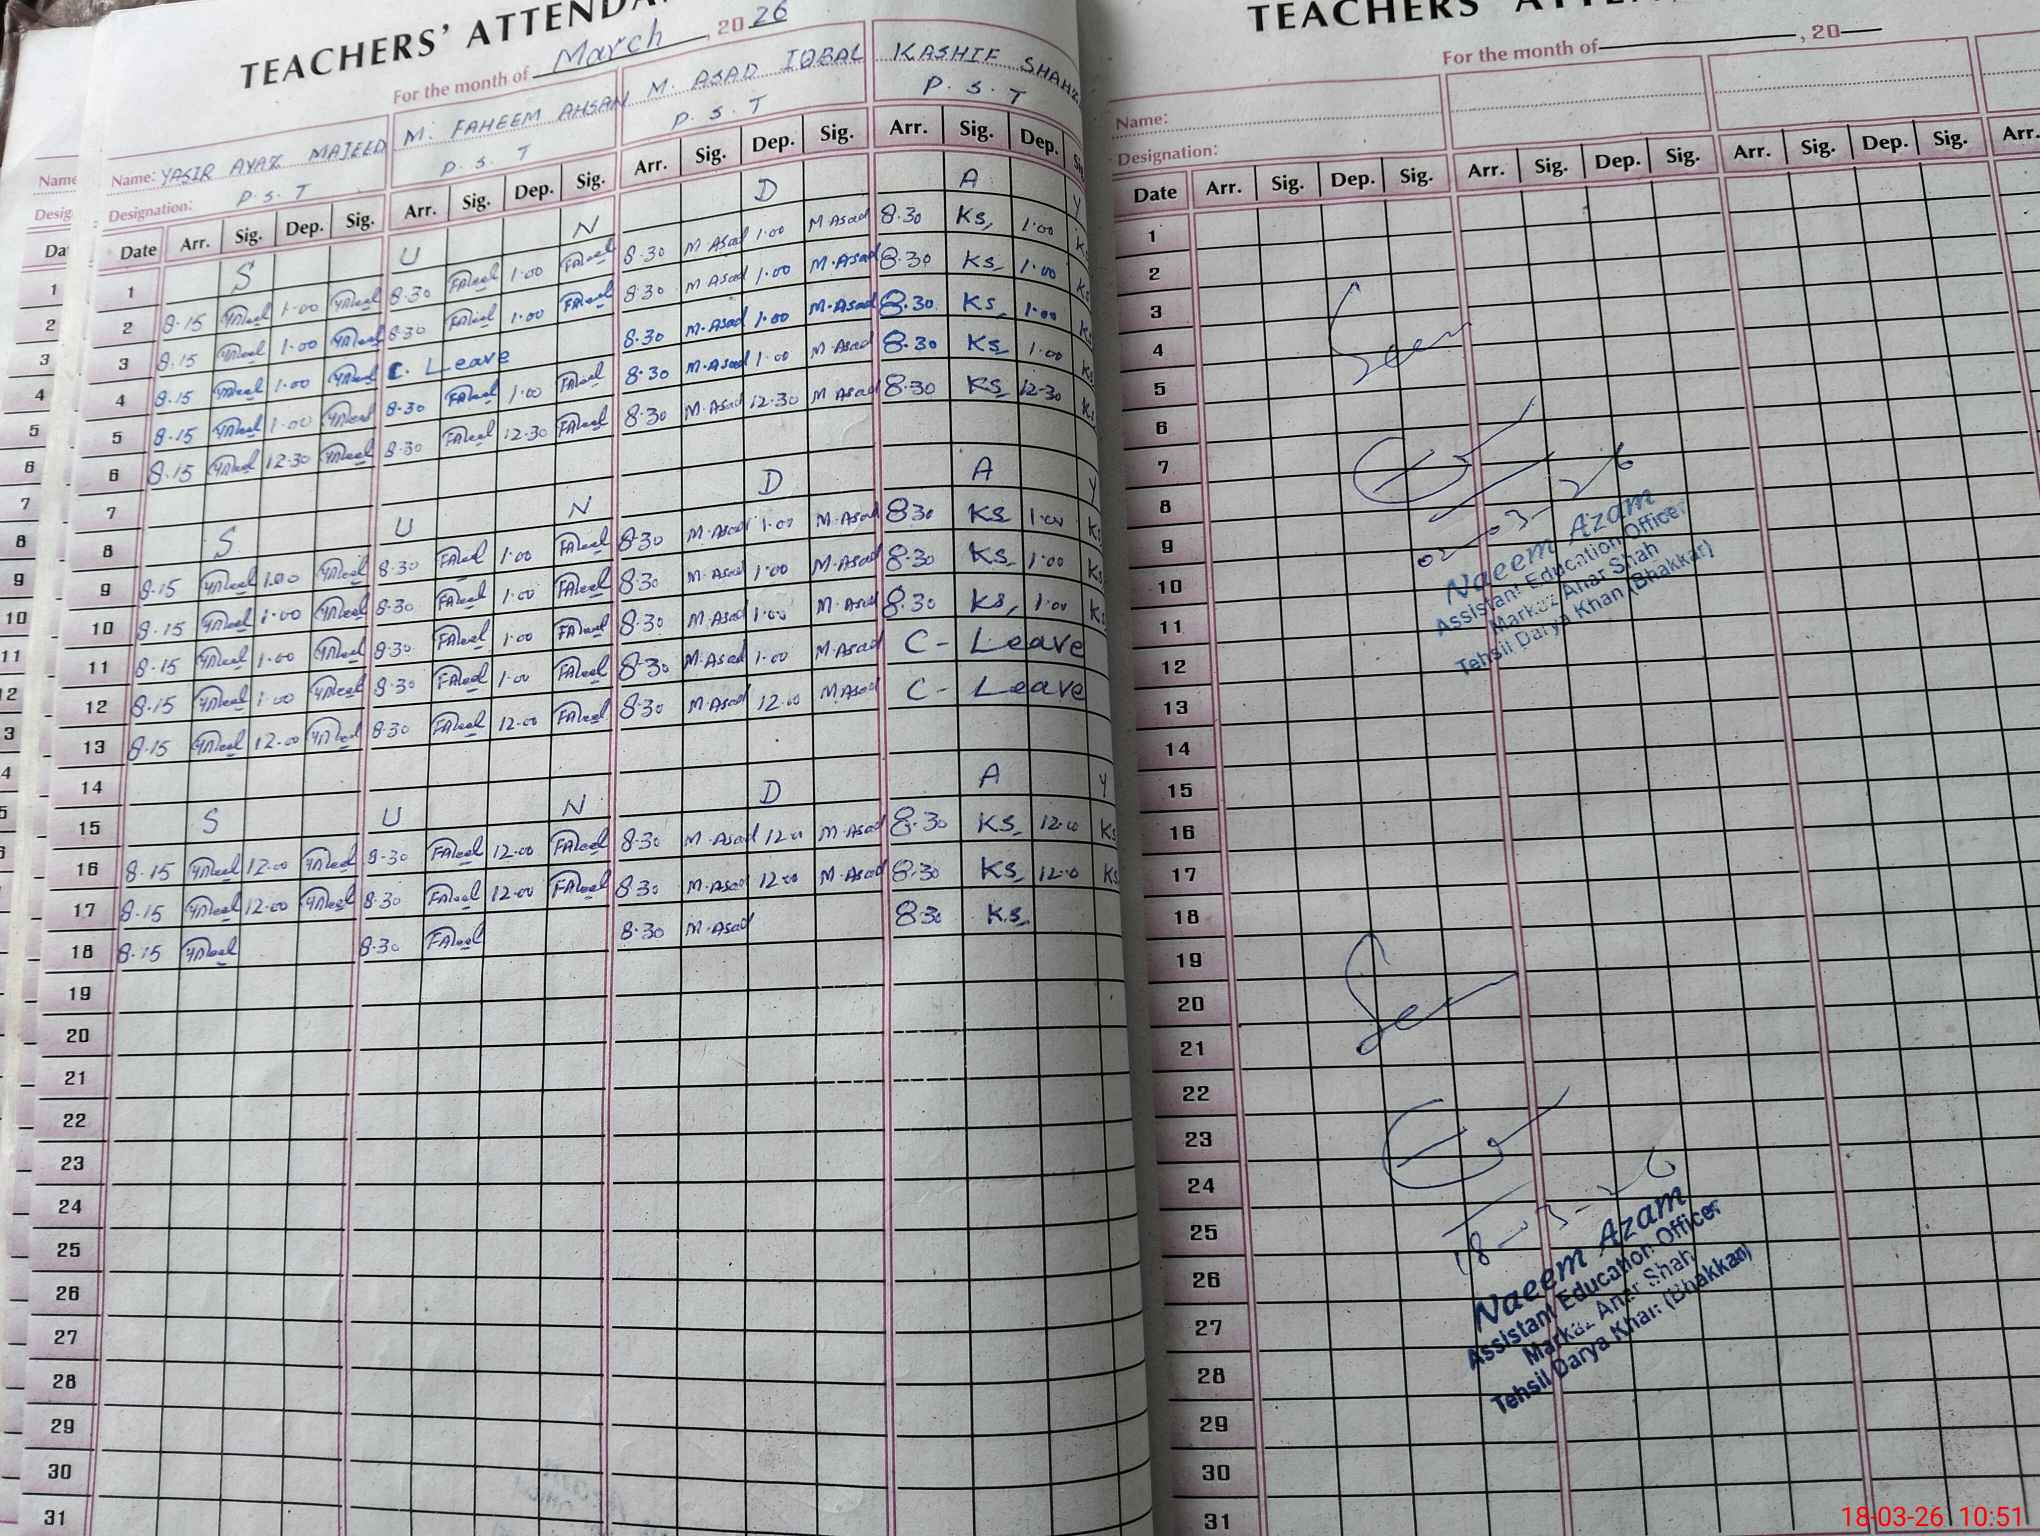 TEACHERS' ATTENDA
For the month of March, 2026
Name: YASIR AYAZ MAJEED M. FAHEEM AHSAN M. ASAD IQBAL KASHIF
Designation: P.S.T P.S.T P.S.T P.S.T
Date Arr. Sig. Dep. Sig. Arr. Sig. Dep. Sig. Arr. Sig. Dep. Sig. Arr. Sig. Dep.
1 S U N D A Y
2 8.15 1.00 8.30 1.00 8.30 M Asad 1.00 M Asad 8.30 Ks 1.00 Ks
3 8.15 1.00 8.30 1.00 8.30 M Asad 1.00 M.Asad 8.30 Ks 1.00 Ks
4 8.15 1.00 C. Leave 8.30 M.Asad 1.00 M.Asad 8.30 Ks 1.00 Ks
5 8.15 1.00 8.30 1.00 8.30 M.Asad 1.00 M.Asad 8.30 Ks 1.00 Ks
6 8.15 12.30 8.30 12.30 8.30 M.Asad 12.30 M Asad 8.30 Ks 12.30 Ks
7
8 S U N D A Y
9 8.15 1.00 8.30 1.00 8.30 M.Asad 1.00 M.Asad 8.30 Ks 1.00 Ks
10 8.15 1.00 8.30 1.00 8.30 M.Asad 1.00 M.Asad 8.30 Ks 1.00 Ks
11 8.15 1.00 8.30 1.00 8.30 M.Asad 1.00 M.Asad 8.30 Ks 1.00 Ks
12 8.15 1.00 8.30 1.00 8.30 M.Asad 1.00 M.Asad C- Leave
13 8.15 12.00 8.30 12.00 8.30 M.Asad 12.00 M Asad C- Leave
14
15 S U N D A Y
16 8.15 12.00 8.30 12.00 8.30 M.Asad 12.00 M.Asad 8.30 Ks 12.00 Ks
17 8.15 12.00 8.30 12.00 8.30 M.Asad 12.00 M.Asad 8.30 Ks 12.00 Ks
18 8.15 8.30 8.30 M.Asad 8.30 K.s
19
20
21
22
23
24
25
26
27
28
29
30
31
TEACHERS'
For the month of , 20
Name:
Designation:
Date Arr. Sig. Dep. Sig. Arr. Sig. Dep. Sig. Arr. Sig. Dep. Sig. Arr.
1
2
3
4 Seen
5
6
7
8
9 02-03-26
10 Naeem Azam
11 Assistant Education Officer
12 Markaz Anar Shah
13 Tehsil Darya Khan (Bhakkar)
14
15
16
17
18
19
20 Seen
21
22
23
24
25 18-03-26
26 Naeem Azam
27 Assistant Education Officer
28 Markaz Anar Shah
29 Tehsil Darya Khan (Bhakkar)
30
31
18-03-26 10:51